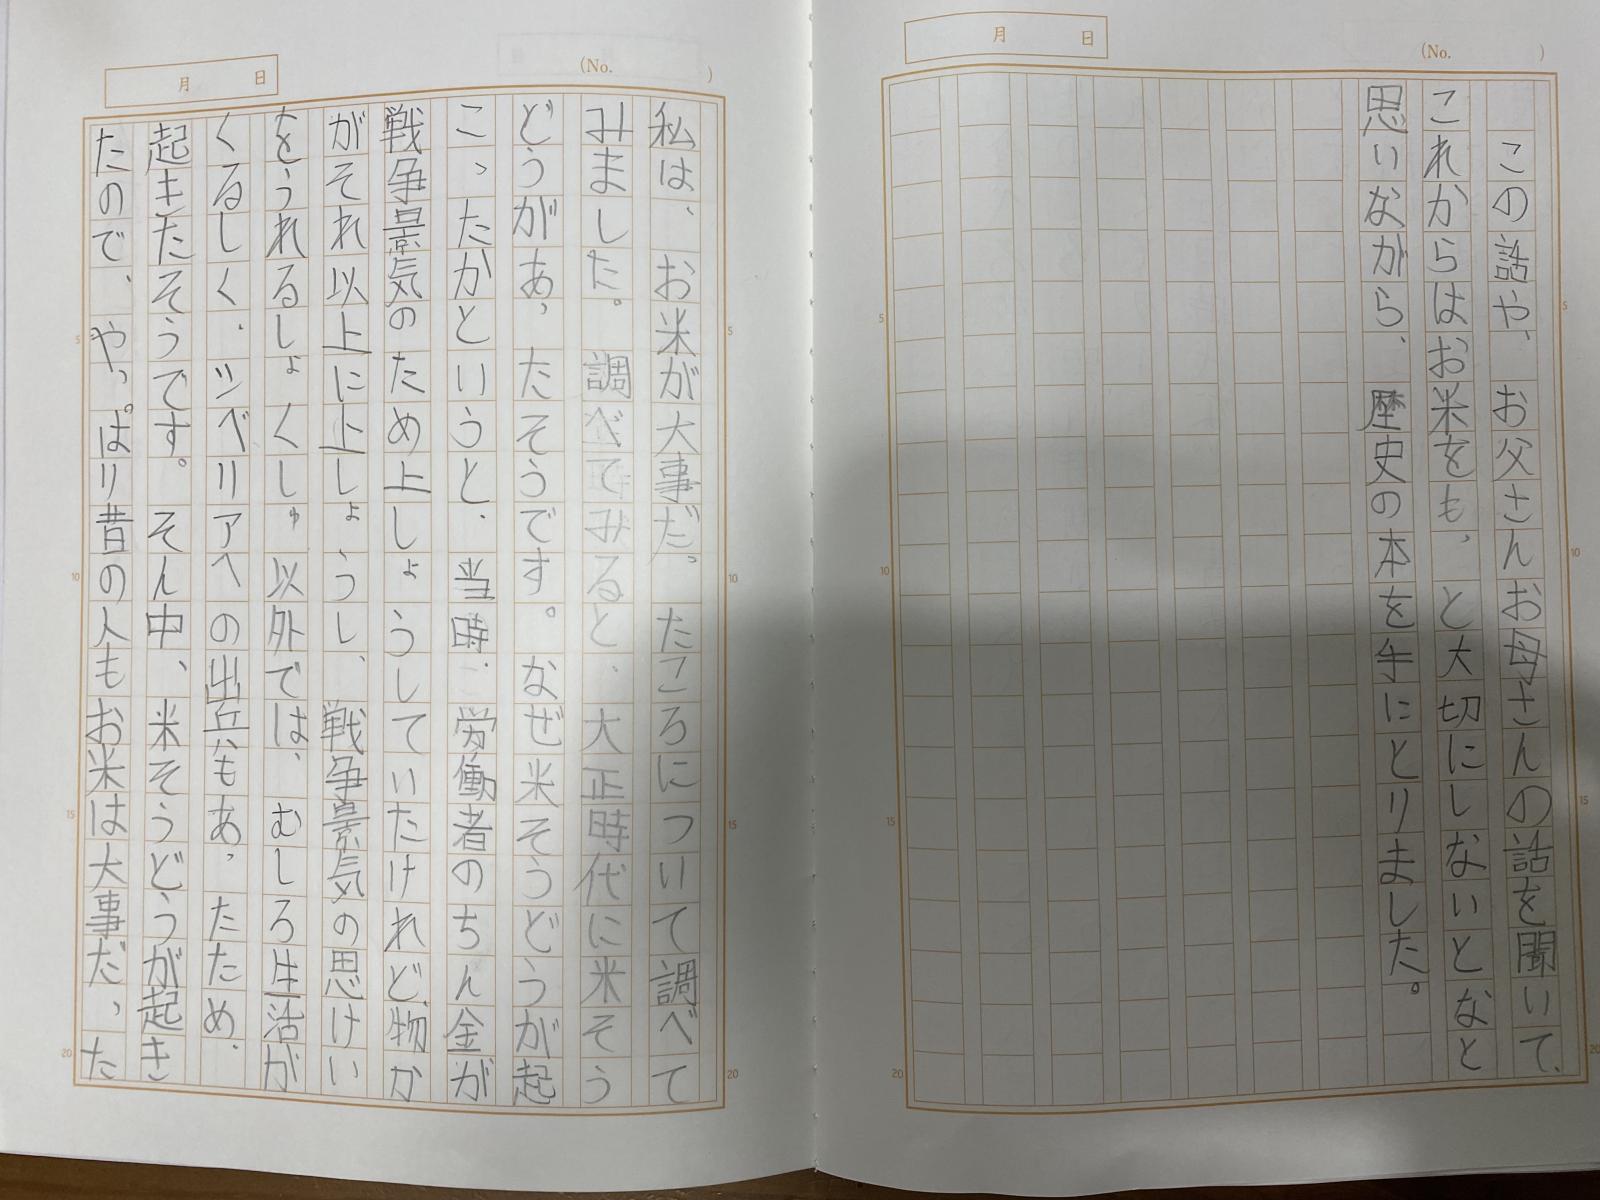 月 日
(No. )
この話や、お父さんお母さんの話を聞いて、
これからはお米をも、と大切にしないとなと
思いながら、歴史の本を手にとりました。
月 日
(No. )
私は、お米が大事だったころについて調べて
みました。調べてみると、大正時代に米そう
どうがあったそうです。なぜ米そうどうが起
こったかというと、当時、労働者のちん金が
戦争景気のため上しょうしていたけれど、物か
がそれ以上に上しょうし、戦争景気の思けい
をうれるしょくしゅ以外では、むしろ生活が
くるしく、シベリアへの出兵もあったため、
起きたそうです。そん中、米そうどうが起き
たので、やっぱり昔の人もお米は大事だった